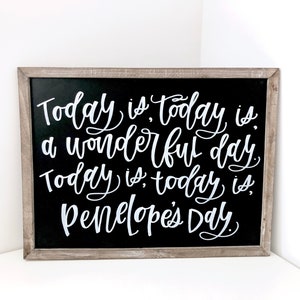 Today is, today is,
a wonderful day.
Today is, today is,
Penelope's Day.